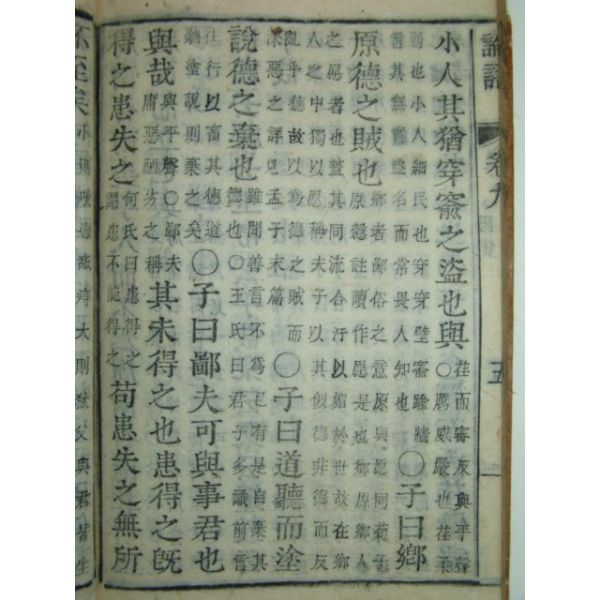 論語 卷九 五
小人其猶穿窬之盜也與
荏而審反與平聲
○厲威嚴也荏柔
弱也小人細民也穿穿壁窬踰牆
言其無實盜名而常畏人知也
○子曰鄉
原德之賊也
鄉者鄙俗之意原與愿同荀子
原愨註讀作愿是也鄉原鄉人
之愿者也蓋其同流合汙以媚於世故在鄉
人之中獨以愿稱夫子以其似德非德而反
亂乎德故以爲德之賊而
深惡之詳見孟子末篇
○子曰道聽而塗
說德之棄也
雖聞善言不爲己有是自棄其
德也○王氏曰君子多識前言
往行以畜其德道
聽塗說則棄之矣
○子曰鄙夫可與事君也
與哉
與平聲○鄙夫
庸惡陋劣之稱
其未得之也患得之旣
得之患失之
何氏曰患得之
謂患不能得之
苟患失之無所
不至矣
小則吮癰舐痔大則弒父與君皆生